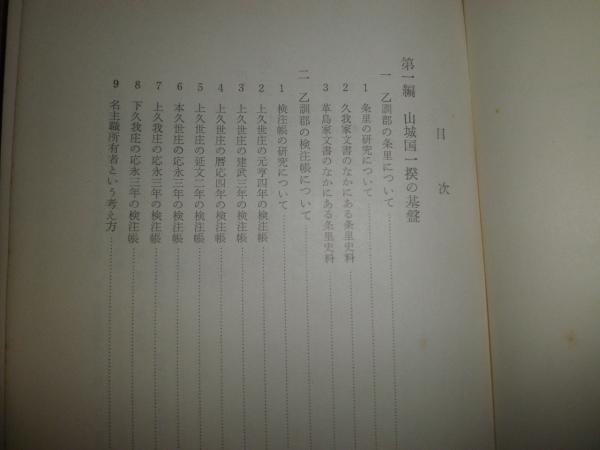 目次
第一編 山城国一揆の基盤
一 乙訓郡の条里について
1 条里の研究について
2 久我家文書のなかにある条里史料
3 革島家文書のなかにある条里史料
二 乙訓郡の検注帳について
1 検注帳の研究について
2 上久世庄の元亨四年の検注帳
3 上久世庄の建武三年の検注帳
4 上久世庄の暦応四年の検注帳
5 上久世庄の延文二年の検注帳
6 本久世庄の応永三年の検注帳
7 上久我庄の応永三年の検注帳
8 下久我庄の応永三年の検注帳
9 名主職所有者という考え方